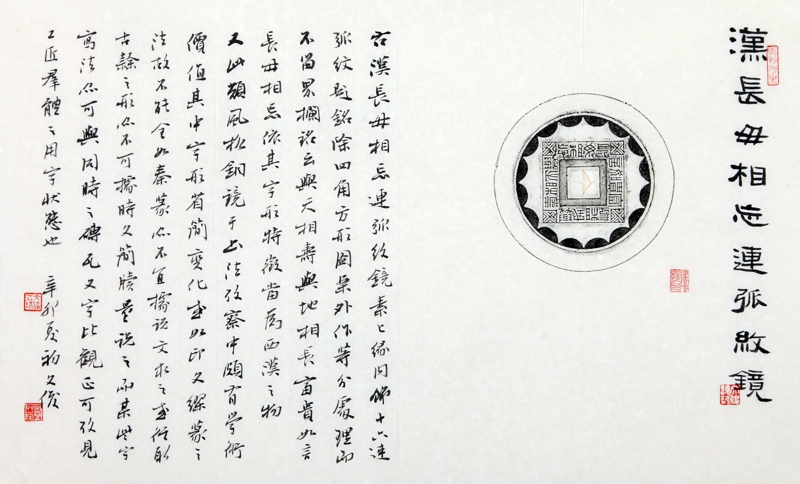 漢長毋相忘連弧紋鏡
右漢長毋相忘連弧紋鏡素上緣內飾十六連
弧紋閒銘除四角方形圖案外作等分處理而
不留界欄銘云與天相壽與地相長富貴如言
長毋相忘依其字形特徵當爲西漢之物
又此類風格銅鏡于書法考察中頗有學術
價值其中字形省簡變化或如印文繆篆之
法故不能全如秦篆亦不宜據說文求之或雜取
古隸之形亦不可據時人簡牘墨說之而某些字
寫法亦可與同時之磚瓦文字比觀正可考見
工匠群體之用字狀態也 辛卯夏初文俊